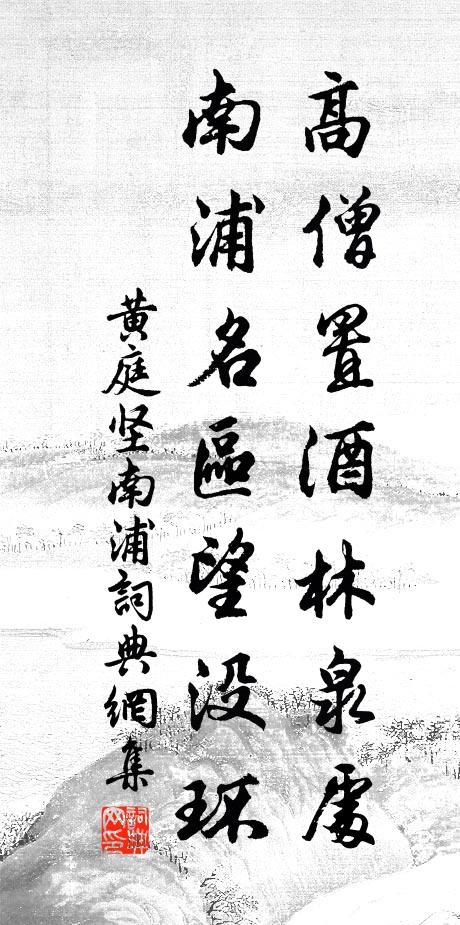 高僧置酒林泉處
南浦名區望没环
黄庭坚南浦詞典網集